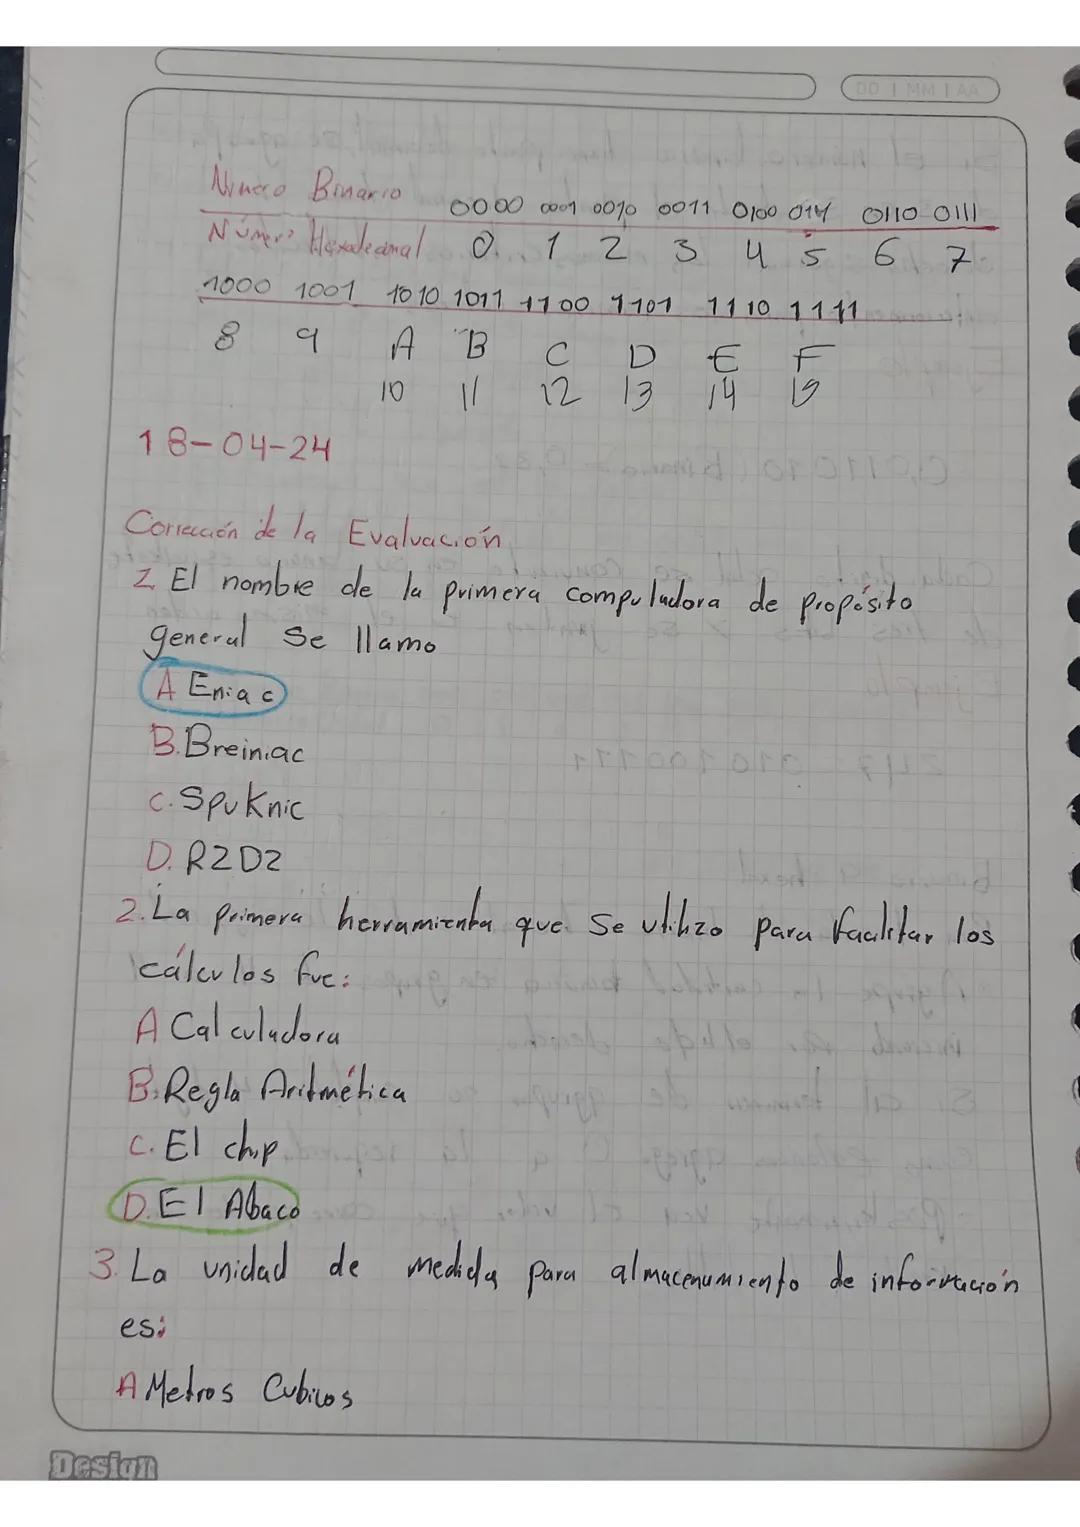 DD | MM | AA
Número Binario 0000 0001 0010 0011 0100 0111 0110 0111
Número Hexadecimal 0 1 2 3 4 5 6 7
1000 1001 1010 1011 1100 1101 1110 1111
8 9 A B C D E F
10 11 12 13 14 15
18-04-24
Corrección de la Evaluación
1. El nombre de la primera computadora de propósito
general se llamo
A Eniac
B. Breiniac
C. Spuknic
D. R2D2
2. La primera herramienta que se utilizo para facilitar los
cálculos fue:
A Calculadora
B. Regla Aritmética
C. El chip
D. El Abaco
3. La unidad de medida para almacenamiento de información
es:
A Metros Cubicos
Design